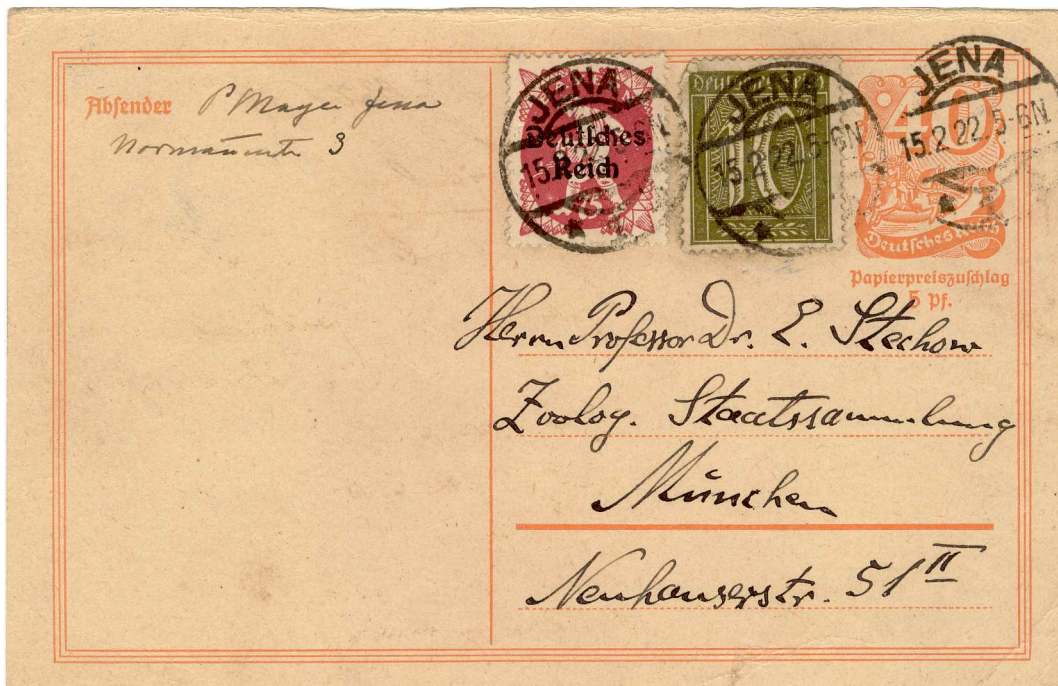 Absender P Mayer Jena
Normannenstr 3
JENA
15.2.22.5-6N
Deutsches
Reich
5
JENA
15.2.22.5-6N
Deutsches Reich
10
JENA
15.2.22.5-6N
40
Deutsches Reich
Papierpreiszuschlag
5 Pf.
Herrn Professor Dr. E. Stechow
Zoolog. Staatssammlung
München
Neuhauserstr. 51 II